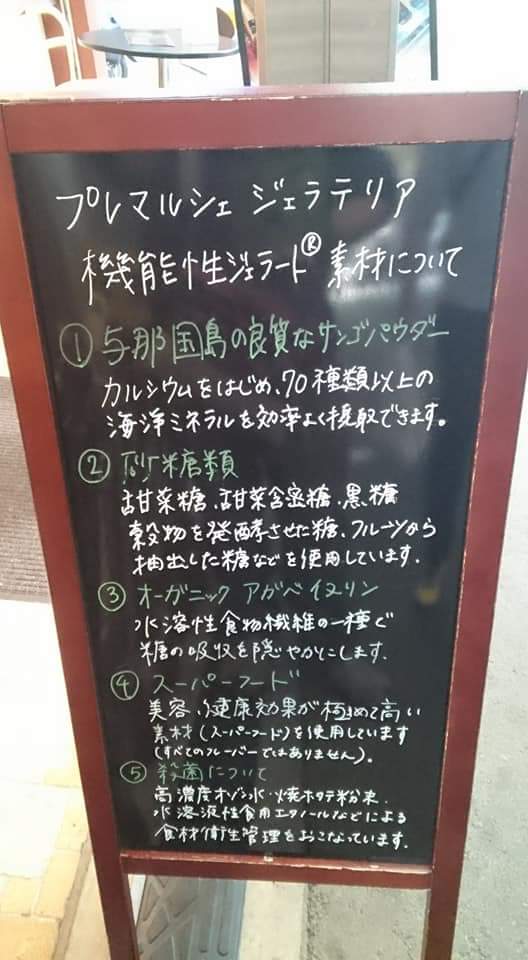 プレマルシェ ジェラテリア
機能性ジェラート® 素材について
① 与那国島の良質なサンゴパウダー
カルシウムをはじめ、70種類以上の
海洋ミネラルを効率よく摂取できます。
② 砂糖類
甜菜糖、甜菜含蜜糖、黒糖
穀物を発酵させた糖、フルーツから
抽出した糖などを使用しています.
③ オーガニック アガベイヌリン
水溶性食物繊維の一種で
糖の吸収を隠やかにします.
④ スーパーフード
美容、健康効果が極めて高い
素材(スーパーフード)を使用しています
(すべてのフレーバーではありません)。
⑤ 殺菌について
高濃度オゾン水・焼ホタテ粉末.
水溶液性食用エタノールなどによる
食材衛生管理をおこなっています.